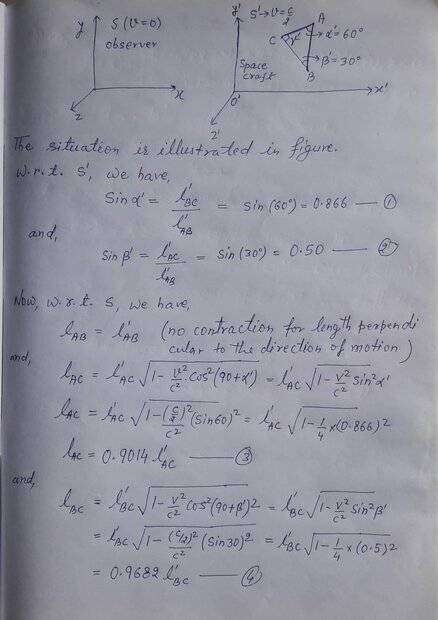 y
S (v=0)
observer
x
z
y'
S'→v=c/2
A
C
γ'
α'=60°
β'=30°
B
Space
craft
O'
x'
z'
The situation is illustrated in figure.
W.r.t. S', we have,
Sin α' = l'_BC / l'_AB = sin(60°) = 0.866 — ①
and,
Sin β' = l'_AC / l'_AB = sin(30°) = 0.50 — ②
Now, w.r.t. S, we have,
l_AB = l'_AB (no contraction for length perpendi
cular to the direction of motion)
and,
l_AC = l'_AC √(1 - v²/c² cos²(90+α')) = l'_AC √(1 - v²/c² sin²α')
l_AC = l'_AC √(1 - (c/2)²/c² (sin60)²) = l'_AC √(1 - 1/4 × (0.866)²)
l_AC = 0.9014 l'_AC — ③
and,
l_BC = l'_BC √(1 - v²/c² cos²(90+β')²) = l'_BC √(1 - v²/c² sin²β')
= l'_BC √(1 - (c/2)²/c² (sin30)²) = l'_BC √(1 - 1/4 × (0.5)²)
= 0.9682 l'_BC — ④